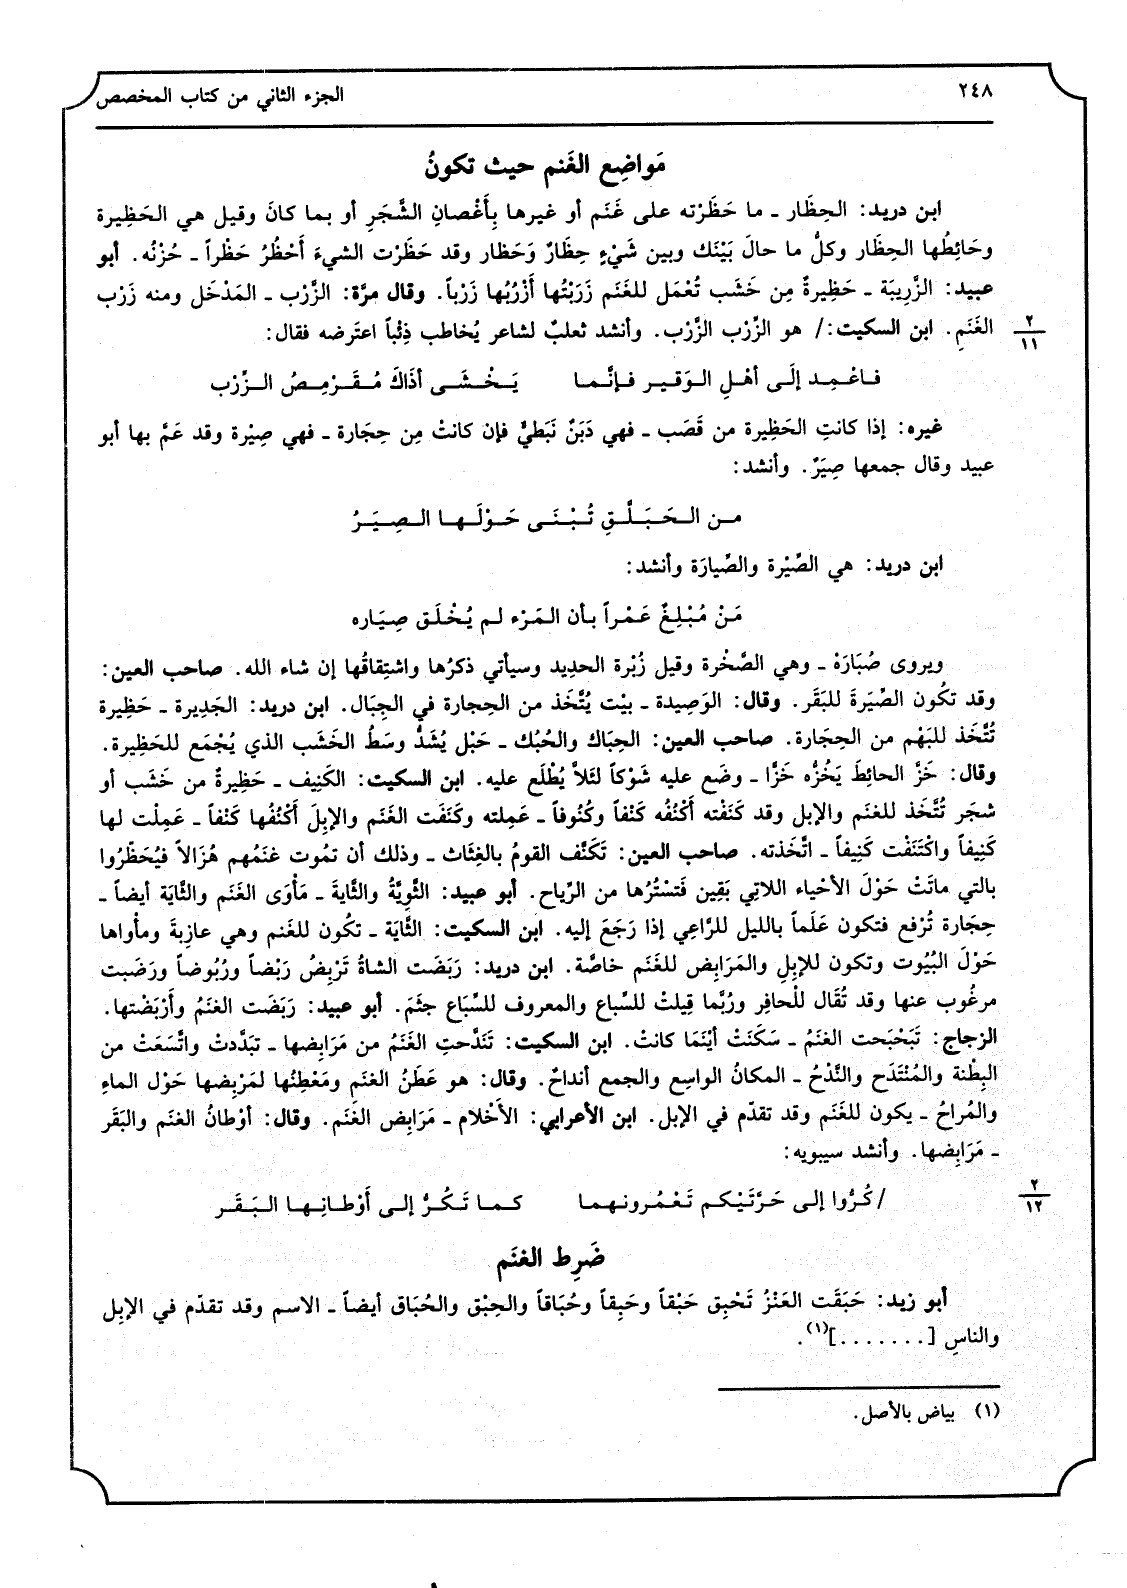 ٢٤٨ الجزء الثاني من كتاب المخصص
مَواضِع الغَنم حيث تكونُ
ابن دريد: الحِظَار ـ ما حَظَرْته على غَنَم أو غيرها بِأَغْصانِ الشَّجَرِ أو بما كانَ وقيل هي الحَظِيرة
وحَائِطُها الحِظَار وكلُّ ما حالَ بَيْنَك وبين شَيْءٍ حِظَارٌ وَحَظار وقد حَظَرْت الشيءَ أَحْظُرُ حَظْراً ـ حُزْتُه. أبو
عبيد: الزَّرِيبَة ـ حَظِيرةٌ مِن خَشَب تُعْمَل للغَنَم زَرَبْتُها أَزْرُبُها زَرْباً. وقال مرَّة: الزَّرْب ـ المَدْخَل ومنه زَرْب
الغَنَمِ. ابن السكيت:/ هو الزِّرْب الزَّرْب. وأنشد ثعلبٌ لشاعر يُخاطب ذِئْباً اعترضه فقال:
٢
١١
فـاعْـمِـد إلَى أهْـلِ الـوَقـيـر فـإنَّـمـا يَـخْـشَـى أذَاكَ مُـقَـرْمِـصُ الـزِّرْب
غيره: إذا كانتِ الحَظِيرة من قَصَب ـ فهي دَبَنٌ نَبَطيٌّ فإن كانتْ مِن حِجَارة ـ فهي صِيْرة وقد عَمَّ بها أبو
عبيد وقال جمعها صِيَرٌ. وأنشد:
مـن الـحَـبَـلَّـقِ تُـبْـنَـى حَـوْلَـهـا الـصِـيَـرُ
ابن دريد: هي الصِّيْرة والصِّيارَة وأنشد:
مَـنْ مُـبْـلِـغٌ عَـمْـراً بـأن الـمَـرْء لـم يُـخْـلَـق صِـيَـاره
ويروى صُبَارَهْ ـ وهي الصَّخْرة وقيل زُبْرة الحديد وسيأتي ذكرُها واشتِقاقُها إن شاء الله. صاحب العين:
وقد تكُون الصِّيَرةَ للبَقَر. وقال: الوَصِيدة ـ بيْت يُتَّخَذ من الحِجارة في الجِبَال. ابن دريد: الجَدِيرة ـ حَظِيرة
تُتَّخَذ للبَهْم من الحِجَارة. صاحب العين: الحِبَاك والحُبُك ـ حَبْل يُشَدُّ وسَطُ الخَشَب الذي يُجْمَع للحَظِيرة.
وقال: خَزَّ الحائطَ يَخُزُّه خَزًّا ـ وضَع عليه شَوْكاً لئَلاَّ يُطْلَع عليه. ابن السكيت: الكَنِيف ـ حَظِيرةٌ من خَشَب أو
شجَر تُتَّخَذ للغنَم والإبل وقد كَنَفْته أَكْنُفُه كَنْفاً وكُنُوفاً ـ عَمِلته وكَنَفْت الغَنَم والإبِلَ أَكْنُفُها كَنْفاً ـ عَمِلْت لها
كَنِيفاً واكْتَنَفْت كَنِيفاً ـ اتَّخَذته. صاحب العين: تَكَنَّف القومُ بالغِثَاث ـ وذلك أن تمُوت غنَمُهم هُزَالاً فيُحَظِّرُوا
بالتي ماتَتْ حَوْلَ الأحْياء اللاتي بَقِين فَتسْتُرُها من الرِّياح. أبو عبيد: الثَّوِيَّةُ والثَّايةَ ـ مَأْوَى الغَنَم والثَّايَة أيضاً ـ
حِجَارة تُرْفع فتكون عَلَماً بالليل للرَّاعِي إذا رَجَعَ إليه. ابن السكيت: الثَّايَة ـ تكُون للغَنم وهي عازِبةَ ومأْواها
حَوْلَ البُيُوت وتكون للإبِلِ والمَرَابِض للغَنَم خاصَّة. ابن دريد: رَبَضَت الشاةُ تَرْبِضُ رَبْضاً ورُبُوضاً ورَضَبت
مرغُوب عنها وقد تُقَال لْحافِر ورُبَّما قِيلتْ للسِّباع والمعروف للسِّبَاع جثَمَ. أبو عبيد: رَبَضَت الغنَمُ وأَرْبَضْتها.
الزجاج: تَبَحْبَحت الغنَمُ ـ سَكَنَتْ أيْنَمَا كانتْ. ابن السكيت: تَنَدَّحتِ الغَنَمُ من مَرَابِضها ـ تبَدَّدتْ واتَّسَعَتْ من
البِطْنة والمُنْتَدَح والنَّدْحُ ـ المكانُ الواسِع والجمع أنداحٌ. وقال: هو عَطَنُ الغنَمِ ومَعْطِنُها لمَرْبِضها حَوْل الماءِ
والمُراحُ ـ يكون للغَنَم وقد تقدّم في الإبل. ابن الأعرابي: الأَخْلام ـ مَرَابِض الغَنَم. وقال: أوْطانُ الغنَم والبَقَر
ـ مَرَابِضها. وأنشد سيبويه:
/كُـرُّوا إلى حَـرَّتَـيْـكـم تَـعْـمُـرونـهـمـا كـمـا تَـكُـرُّ إلـى أَوْطـانِـهـا الـبَـقَـر
٢
١٢
ضَرِط الغنَم
أبو زيد: حَبَقَت العَنْزُ تَحْبِق حَبْقاً وحَبِقاً وحُبَاقاً والحِبْق والحُبَاق أيضاً ـ الاسم وقد تقدّم في الإبِل
والناسِ [.......](١).
(١) بياض بالأصل.